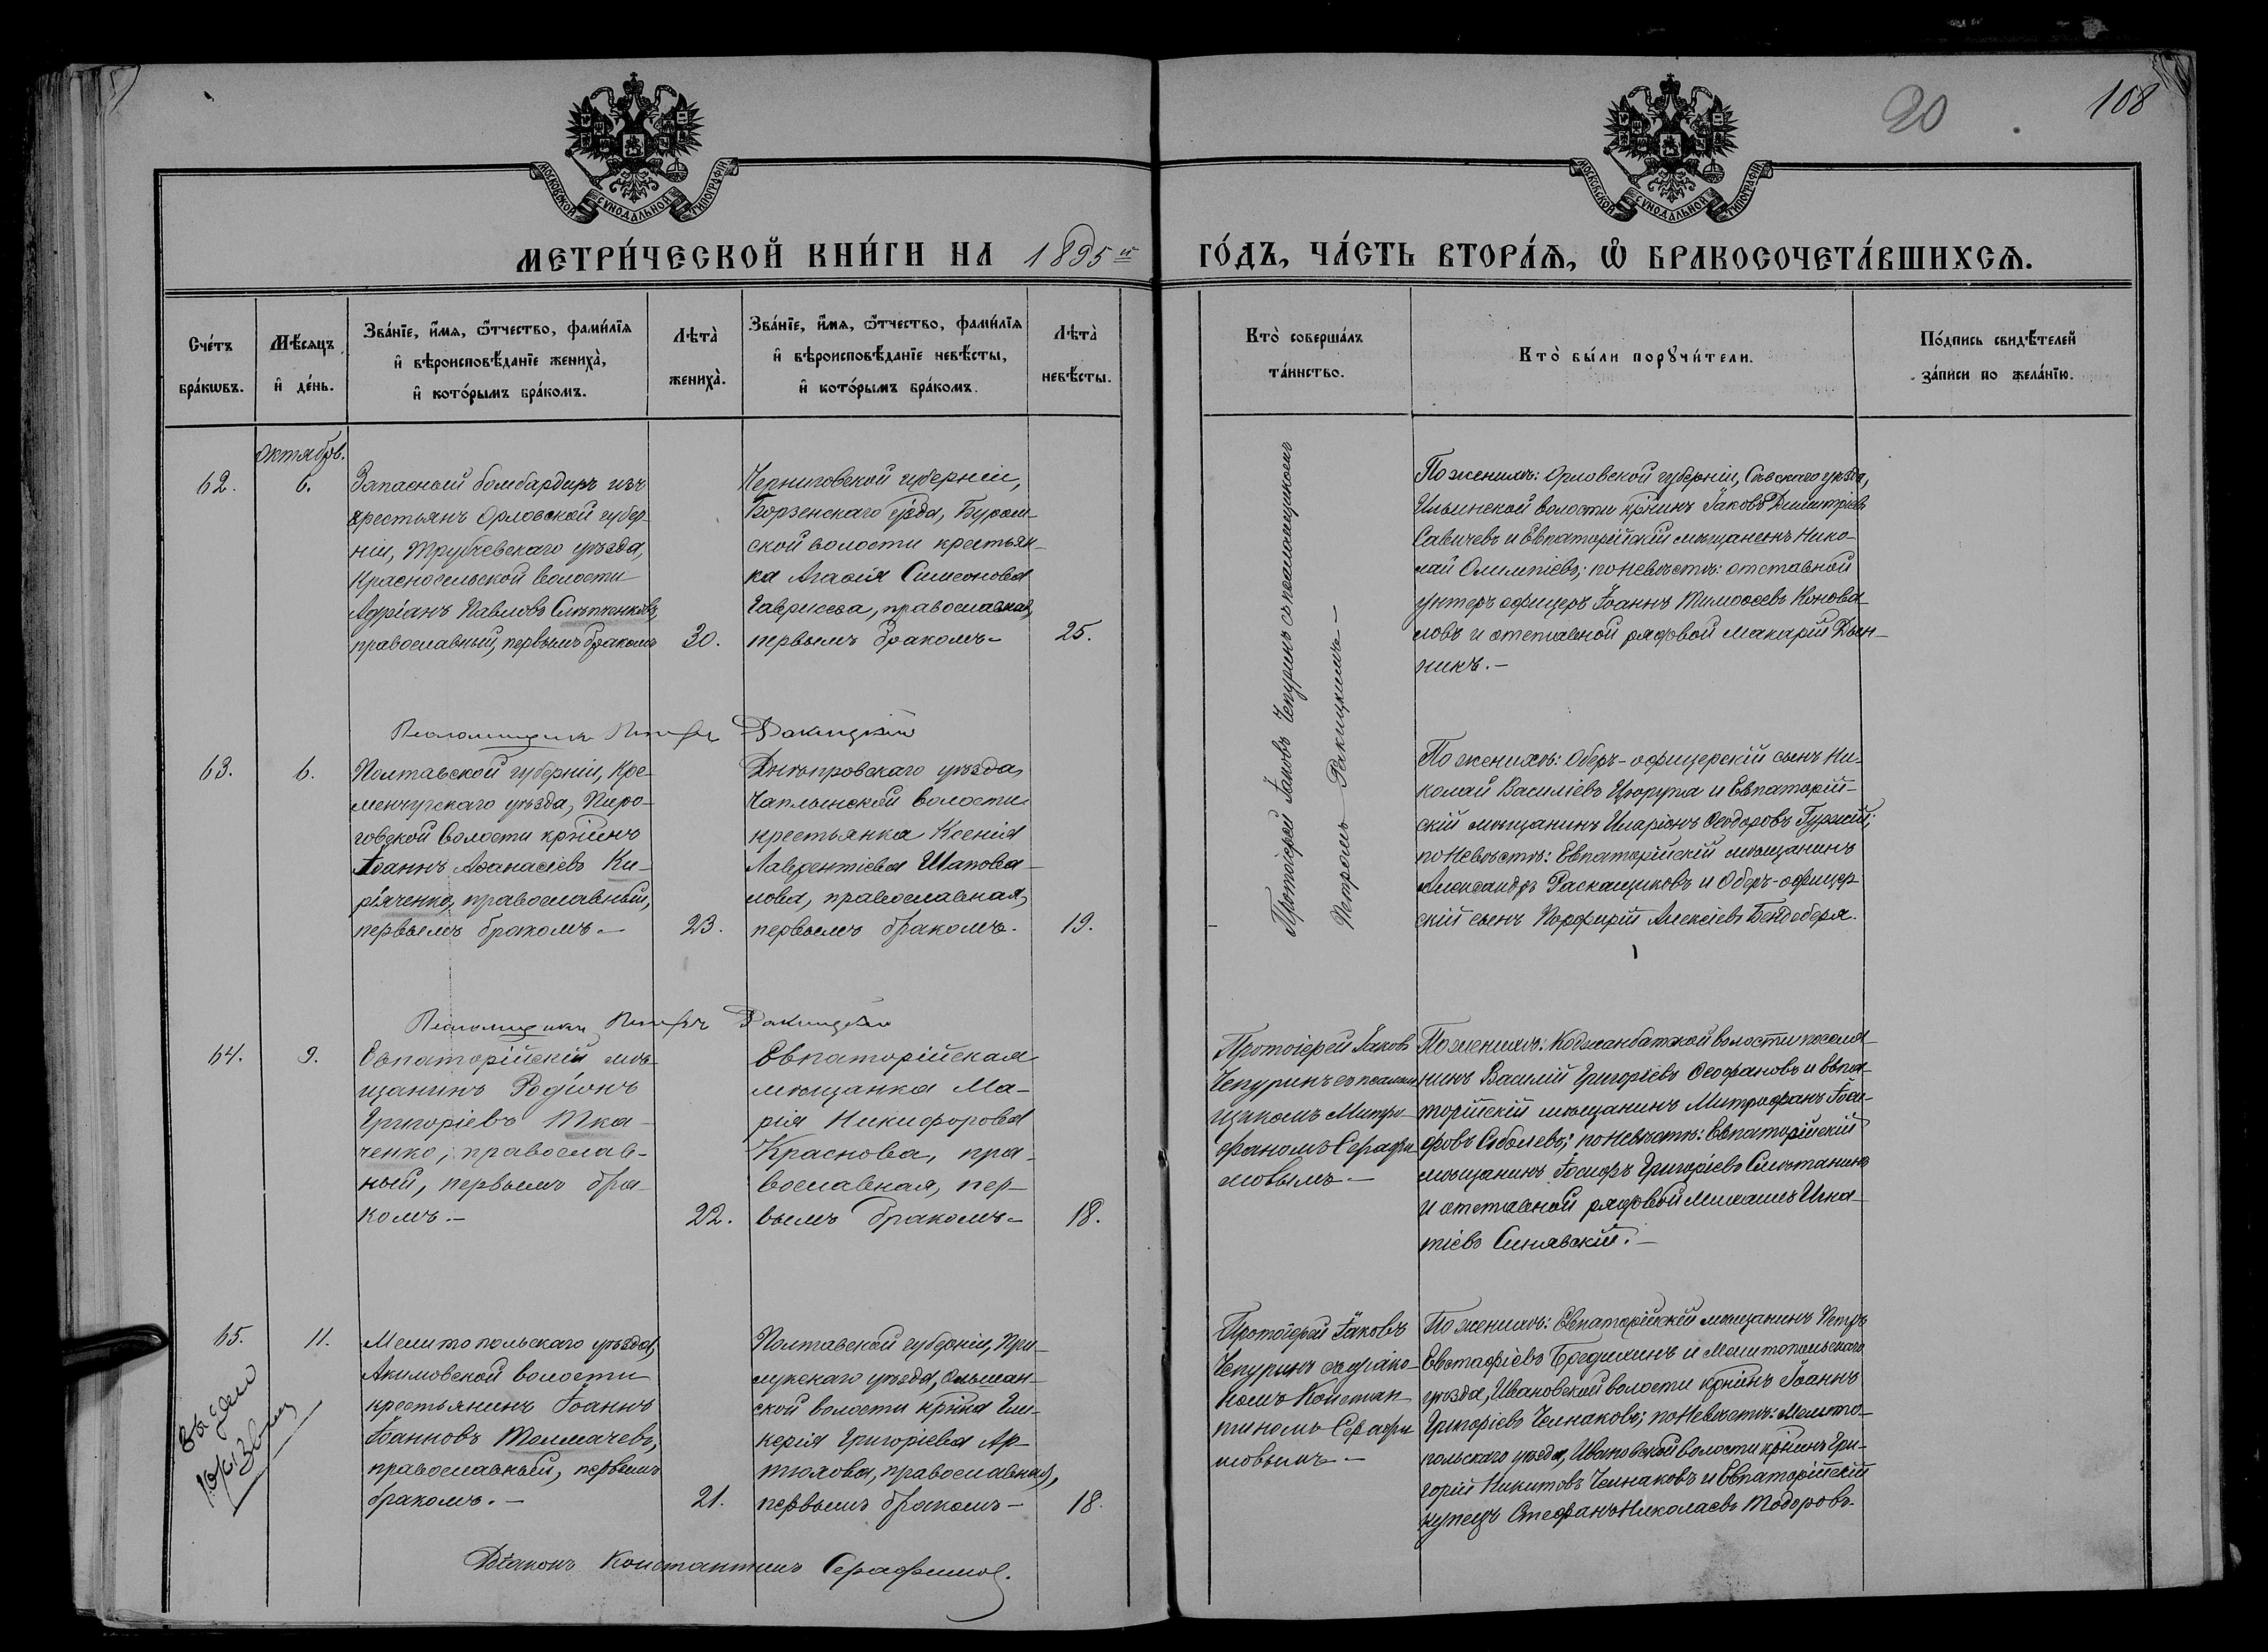 20
108
МОСКОВСКОЙ СѴНОДАЛЬНОЙ ТИПОГРАФІИ
МОСКОВСКОЙ СѴНОДАЛЬНОЙ ТИПОГРАФІИ
МЕТРИ́ЧЕСКОЙ КНИ́ГИ НА 1895й
ГО́ДЪ, ЧА́СТЬ ВТОРА́Ѧ, Ѽ БРАКОСОЧЕТА́ВШИХСѦ.
Сче́тъ
бра́кѡвъ.
Мѣ́сяцъ
и҆ де́нь.
Зва́нїе, и҆́мѧ, ѻ҆́тчество, фами́лїѧ
и҆ вѣроисповѣ́данїе жениха̀,
и҆ кото́рымъ бра́комъ.
Лѣта̀
жениха̀.
Зва́нїе, и҆́мѧ, ѻ҆́тчество, фами́лїѧ
и҆ вѣроисповѣ́данїе невѣ́сты,
и҆ кото́рымъ бра́комъ.
Лѣта̀
невѣ́сты.
Кто̀ соверша́лъ
та́инство.
Кто̀ бы́ли порꙋчи́тели.
По́дпись свидѣ́телей
за́писи по жела́нїю.
октябрь.
62.
6.
Запасный бомбардиръ изъ
крестьянъ Орловской губер-
ніи, Трубчевскаго уѣзда,
Красносельской волости
Адріанъ Павловъ
православный, первымъ бракомъ
30.
Черниговской губерніи,
Борзенскаго уѣзда, Буром-
ской волости крестьян-
ка Агафія Симеонова
Гаврисева, православная,
первымъ бракомъ-
25.
Протоіерей Іаковъ Чепуринъ съ псаломщикомъ
Петромъ Ракицкимъ-
По женихѣ: Орловской губерніи, Сѣвскаго уѣзда,
Ильинской волости кр-нинъ Іаковъ Димитріевъ
Савичевъ и Евпаторійскій мѣщанинъ Нико-
лай Олимпіевъ; по невѣстѣ: отставной
унтеръ офицеръ Іоаннъ Тимоѳеевъ Конова-
ловъ и отставной рядовой Макарій Дын-
никъ.-
Псаломщикъ Петръ Ракицкій
63.
6.
Полтавской губерніи, Кре-
менчугскаго уѣзда, Пиро-
говской волости кр-нинъ
Іоаннъ Аѳанасіевъ Ки-
ріяченко, православный,
первымъ бракомъ-
23.
Днѣпровскаго уѣзда,
Чаплынской волости
крестьянка Ксенія
Лаврентіева Шапова-
лова, православная,
первымъ бракомъ-
19.
По женихѣ: Оберъ-офицерскій сынъ Ни-
колай Василіевъ Цюрупа и Евпаторій-
скій мѣщанинъ Иларіонъ Ѳеодоровъ Гурскій;
по невѣстѣ: Евпаторійскій мѣщанинъ
Александръ Раскащиковъ и Оберъ-офицер-
скій сынъ Порфирій Алексіевъ Бендеберя.
Псаломщикъ Петръ Ракицкій
64.
9.
Евпаторійскій мѣ-
щанинъ Родіонъ
Григоріевъ Тка-
ченко, православ-
ный, первымъ бра-
комъ.-
22.
Евпаторійская
мѣщанка Ма-
рія Никифорова
Краснова, пра-
вославная, пер-
вымъ бракомъ-
18.
Протоіерей Іаковъ
Чепуринъ съ псалом-
щикомъ Митро-
фаномъ Серафи-
мовымъ-
По женихѣ: Коджанбатской волости поселя-
нинъ Василій Григоріевъ Ѳеофановъ и Евпа-
торійскій мѣщанинъ Митрофанъ Іоси-
фовъ Соболевъ; по невѣстѣ: Евпаторійскій
мѣщанинъ Іосифъ Григоріевъ Сметанинъ
и отставной рядовой Михаилъ Игна-
тіевъ Синявскій.-
65.
11.
Мелитопольскаго уѣзда,
Акимовской волости
крестьянинъ Іоаннъ
Іоанновъ Толмачевъ,
православный, первымъ
бракомъ.-
21.
Полтавской губерніи, При-
лукскаго уѣзда, Ольшан-
ской волости кр-нка Гли-
керія Григоріева Ар-
тюхова, православная,
первымъ бракомъ-
18.
Протоіерей Іаковъ
Чепуринъ съ діако-
номъ Констан-
тиномъ Серафи-
мовымъ-
По женихѣ: Евпаторійскій мѣщанинъ Петръ
Евстафіевъ Бредихинъ и Мелитопольскаго
уѣзда, Ивановской волости кр-нинъ Іоаннъ
Григоріевъ Челнаковъ; по невѣстѣ: Мелито-
польскаго уѣзда, Ивановской волости кр-нинъ Гри-
горій Никитовъ Челнаковъ и Евпаторійскій
купецъ Стефанъ Николаевъ Тодоровъ-
Діаконъ Константинъ Серафимовъ.